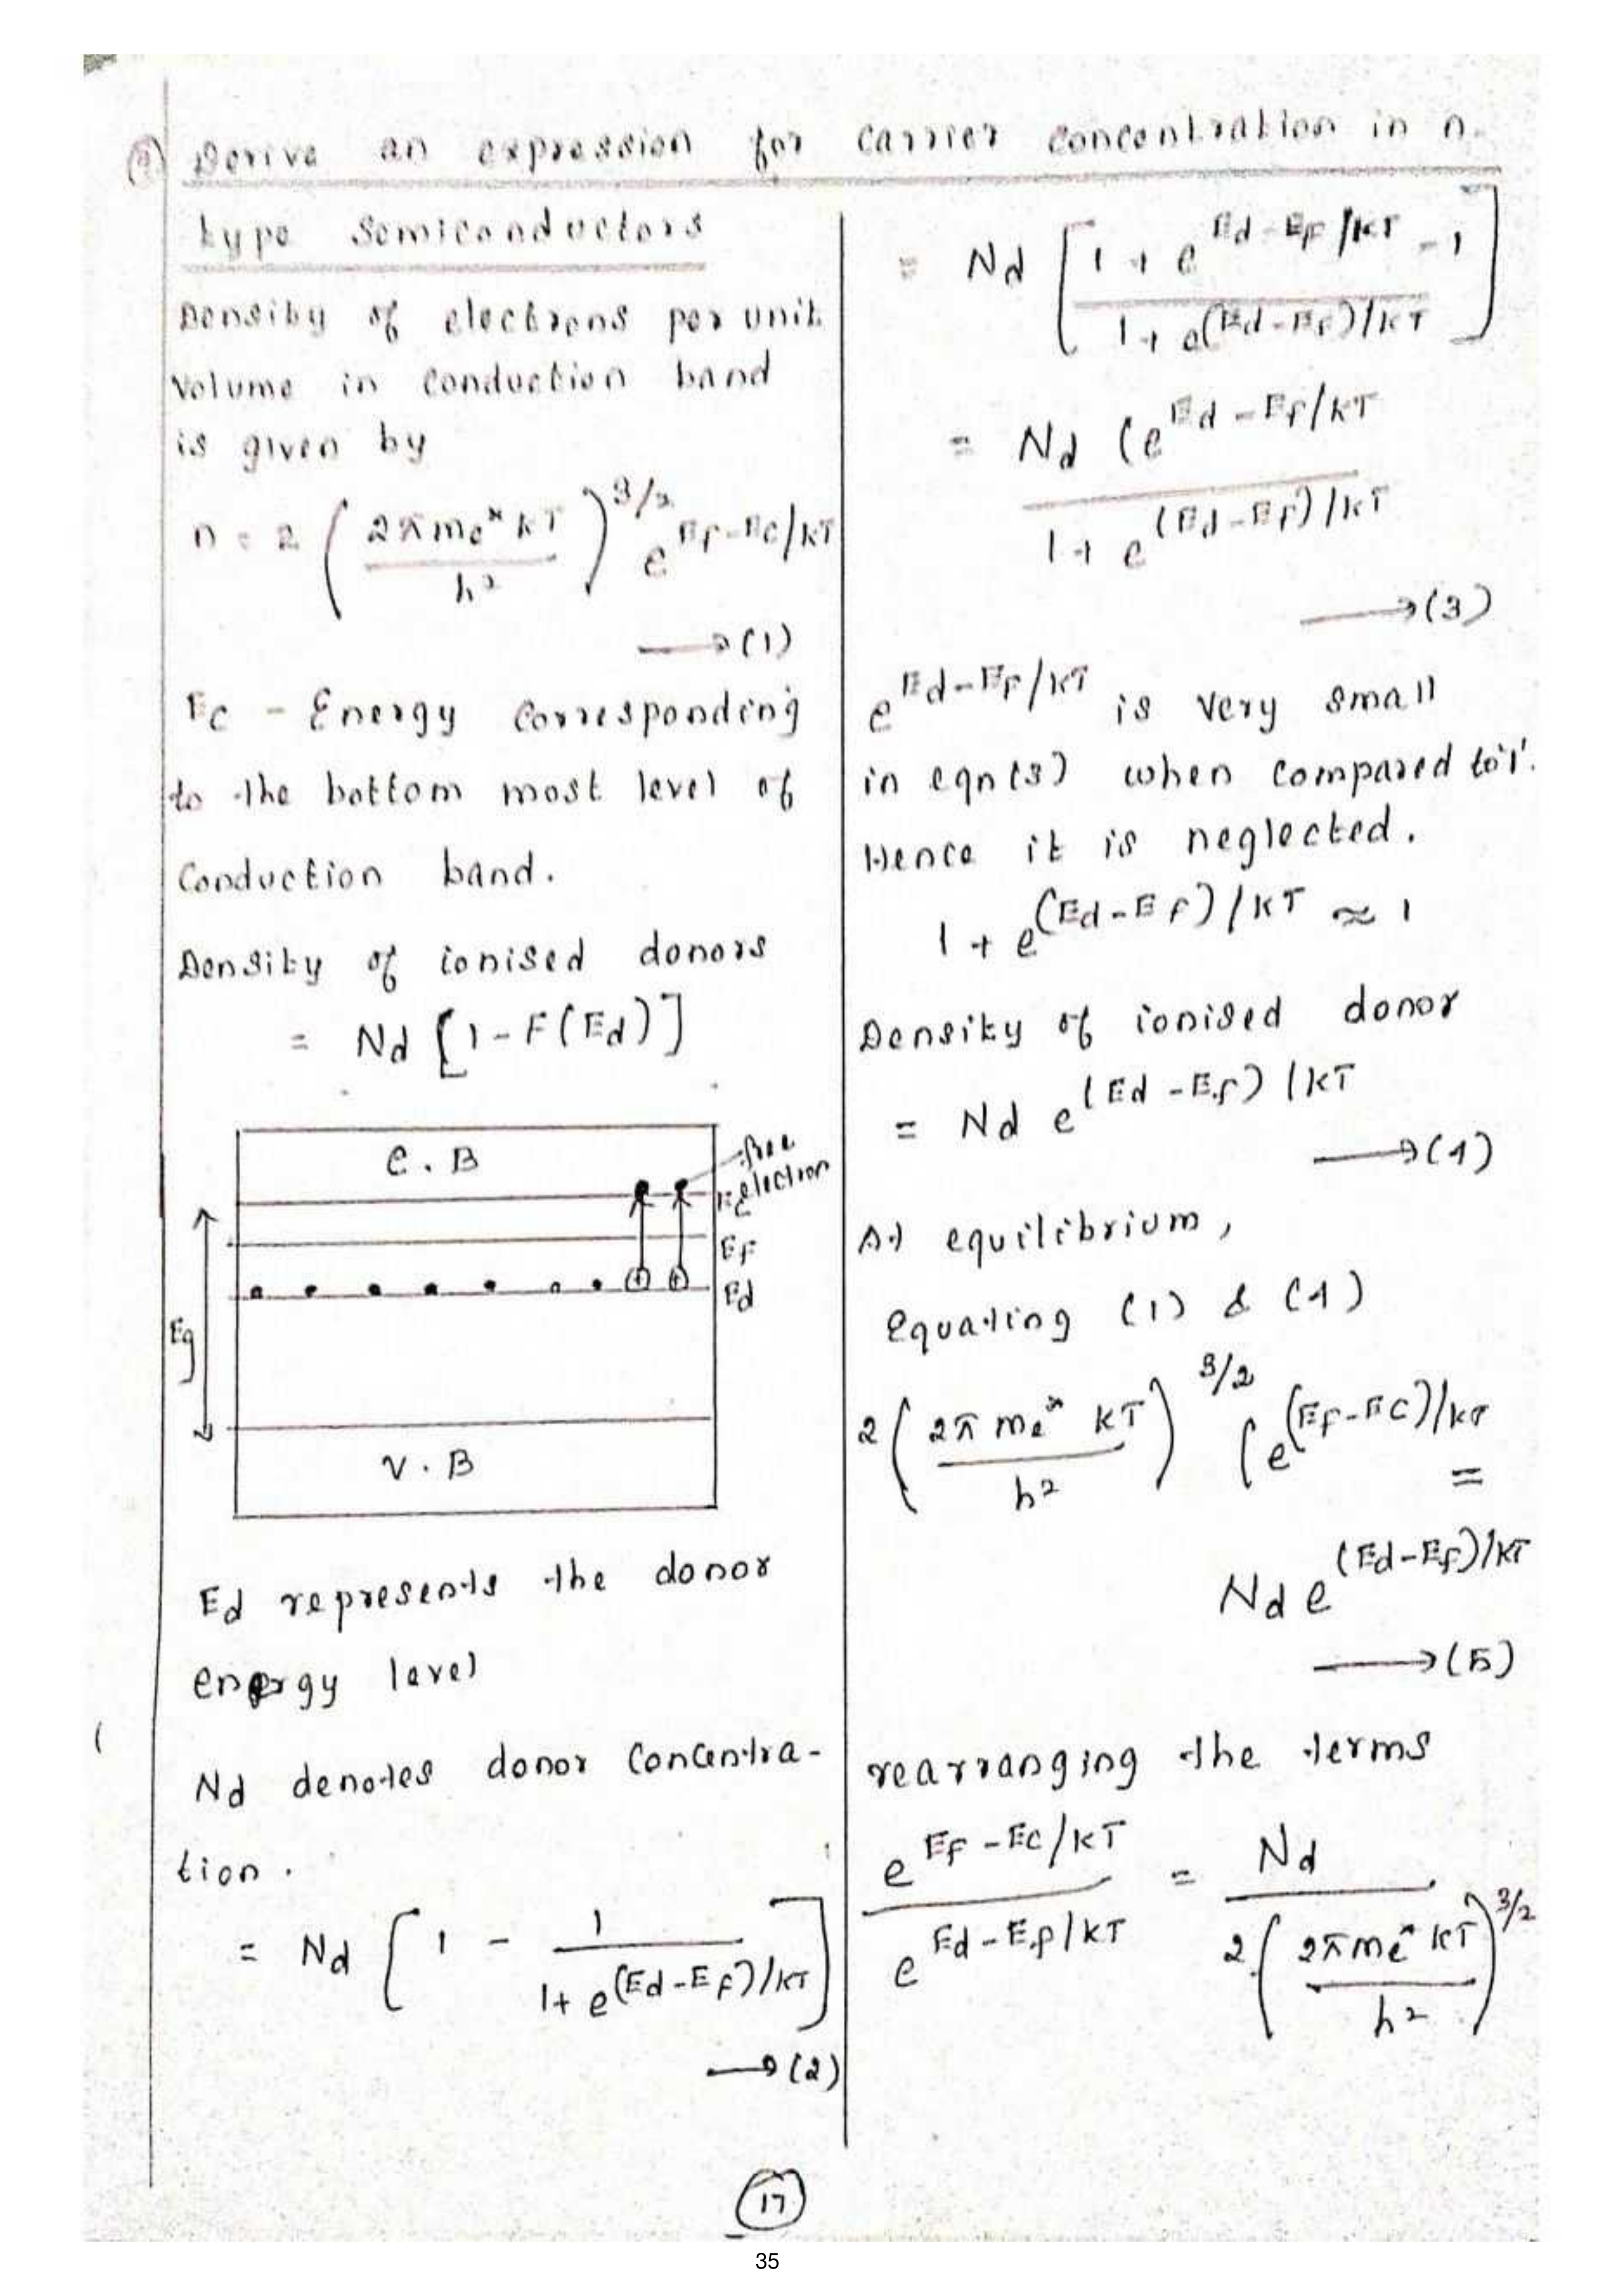 Derive an expression for carrier concentration in n-
type Semiconductors
Density of electrons per unit
Volume in conduction band
is given by
n = 2 (2πme* kT / h²)^3/2 e^Ef-Ec/kT
→(1)
Ec - Energy corresponding
to the bottom most level of
Conduction band.
Density of ionised donors
= Nd [1-F(Ed)]
C.B
free
electron
Ec
Ef
Ed
Eg
V.B
Ed represents the donor
energy level
Nd denotes donor concentra-
tion.
= Nd [1 - 1 / 1+ e^(Ed-Ef)/kT]
→(2)
= Nd [1 + e^Ed-Ef/kT - 1 / 1+ e^(Ed-Ef)/kT]
= Nd (e^Ed-Ef/kT / 1+ e^(Ed-Ef)/kT
→(3)
e^Ed-Ef/kT is very small
in eqn(3) when compared to '1'.
Hence it is neglected.
1 + e^(Ed-Ef)/kT ≈ 1
Density of ionised donor
= Nd e^(Ed-Ef)/kT
→(4)
At equilibrium,
equating (1) & (4)
2 (2π me* kT / h²)^3/2 (e^(Ef-Ec)/kT =
Nd e^(Ed-Ef)/kT
→(5)
rearranging the terms
e^Ef-Ec/kT / e^Ed-Ef/kT = Nd / 2(2πme* kT / h²)^3/2
17
35